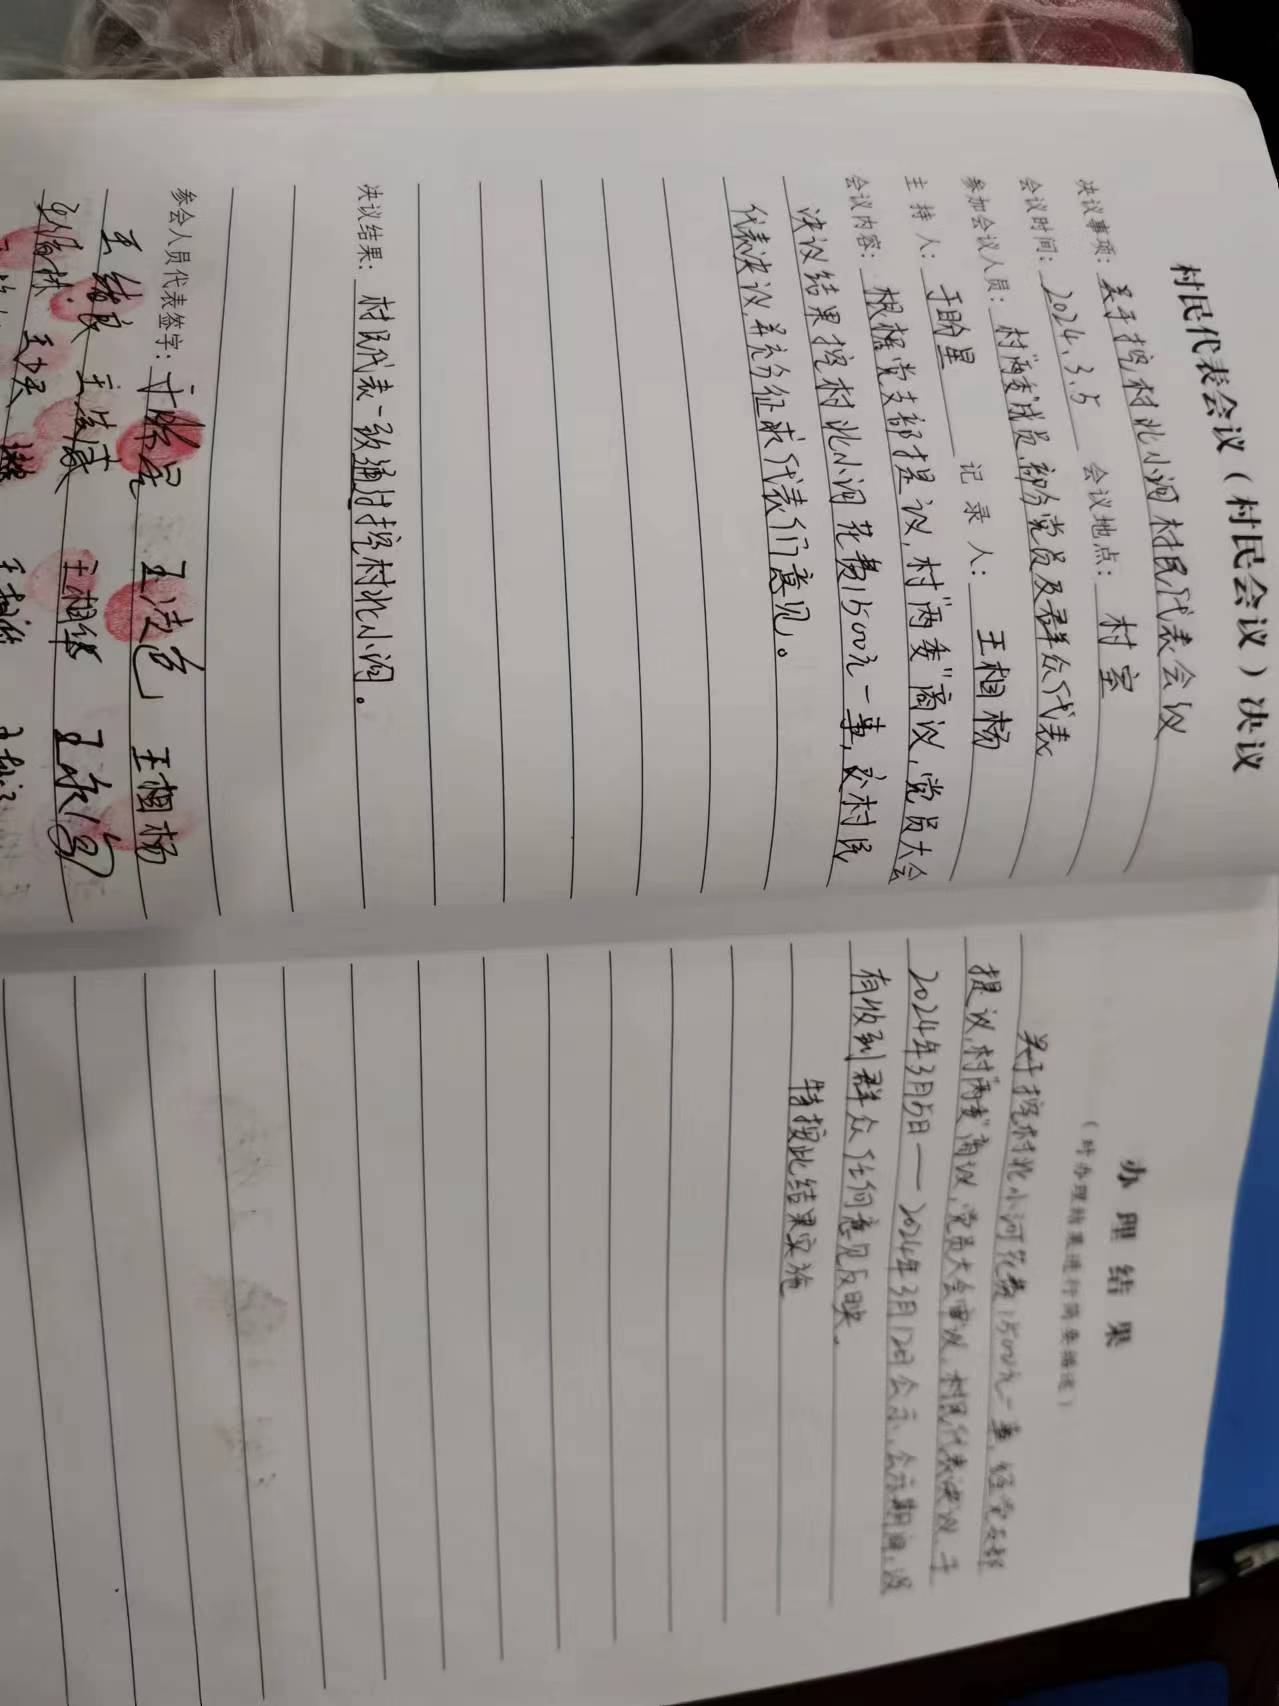 村民代表会议（村民会议）决议
决议事项：关于挖村北小河村民代表会议
会议时间：2024.3.5 会议地点：村室
参加会议人员：村"两委"成员、部分党员及群众代表
主持人：于盼星 记录人：王相杨
会议内容：根据党支部提议，村"两委"商议，党员大会
决议结果挖村北小河花费1500元一事，交村民
代表决议，并充分征求代表们意见。
决议结果：村民代表一致通过挖村北小河。
参会人员代表签字：于盼星 王凌色 王相杨
王绪良 王相华
办理结果
（对办理结果进行简要描述）
关于挖村北小河花费1500元一事，经党支部
提议，村"两委"商议，党员大会审议，村民代表决议，于
2024年3月5日——2024年3月12日公示，公示期间，没
有收到群众任何意见反映。
特按此结果实施